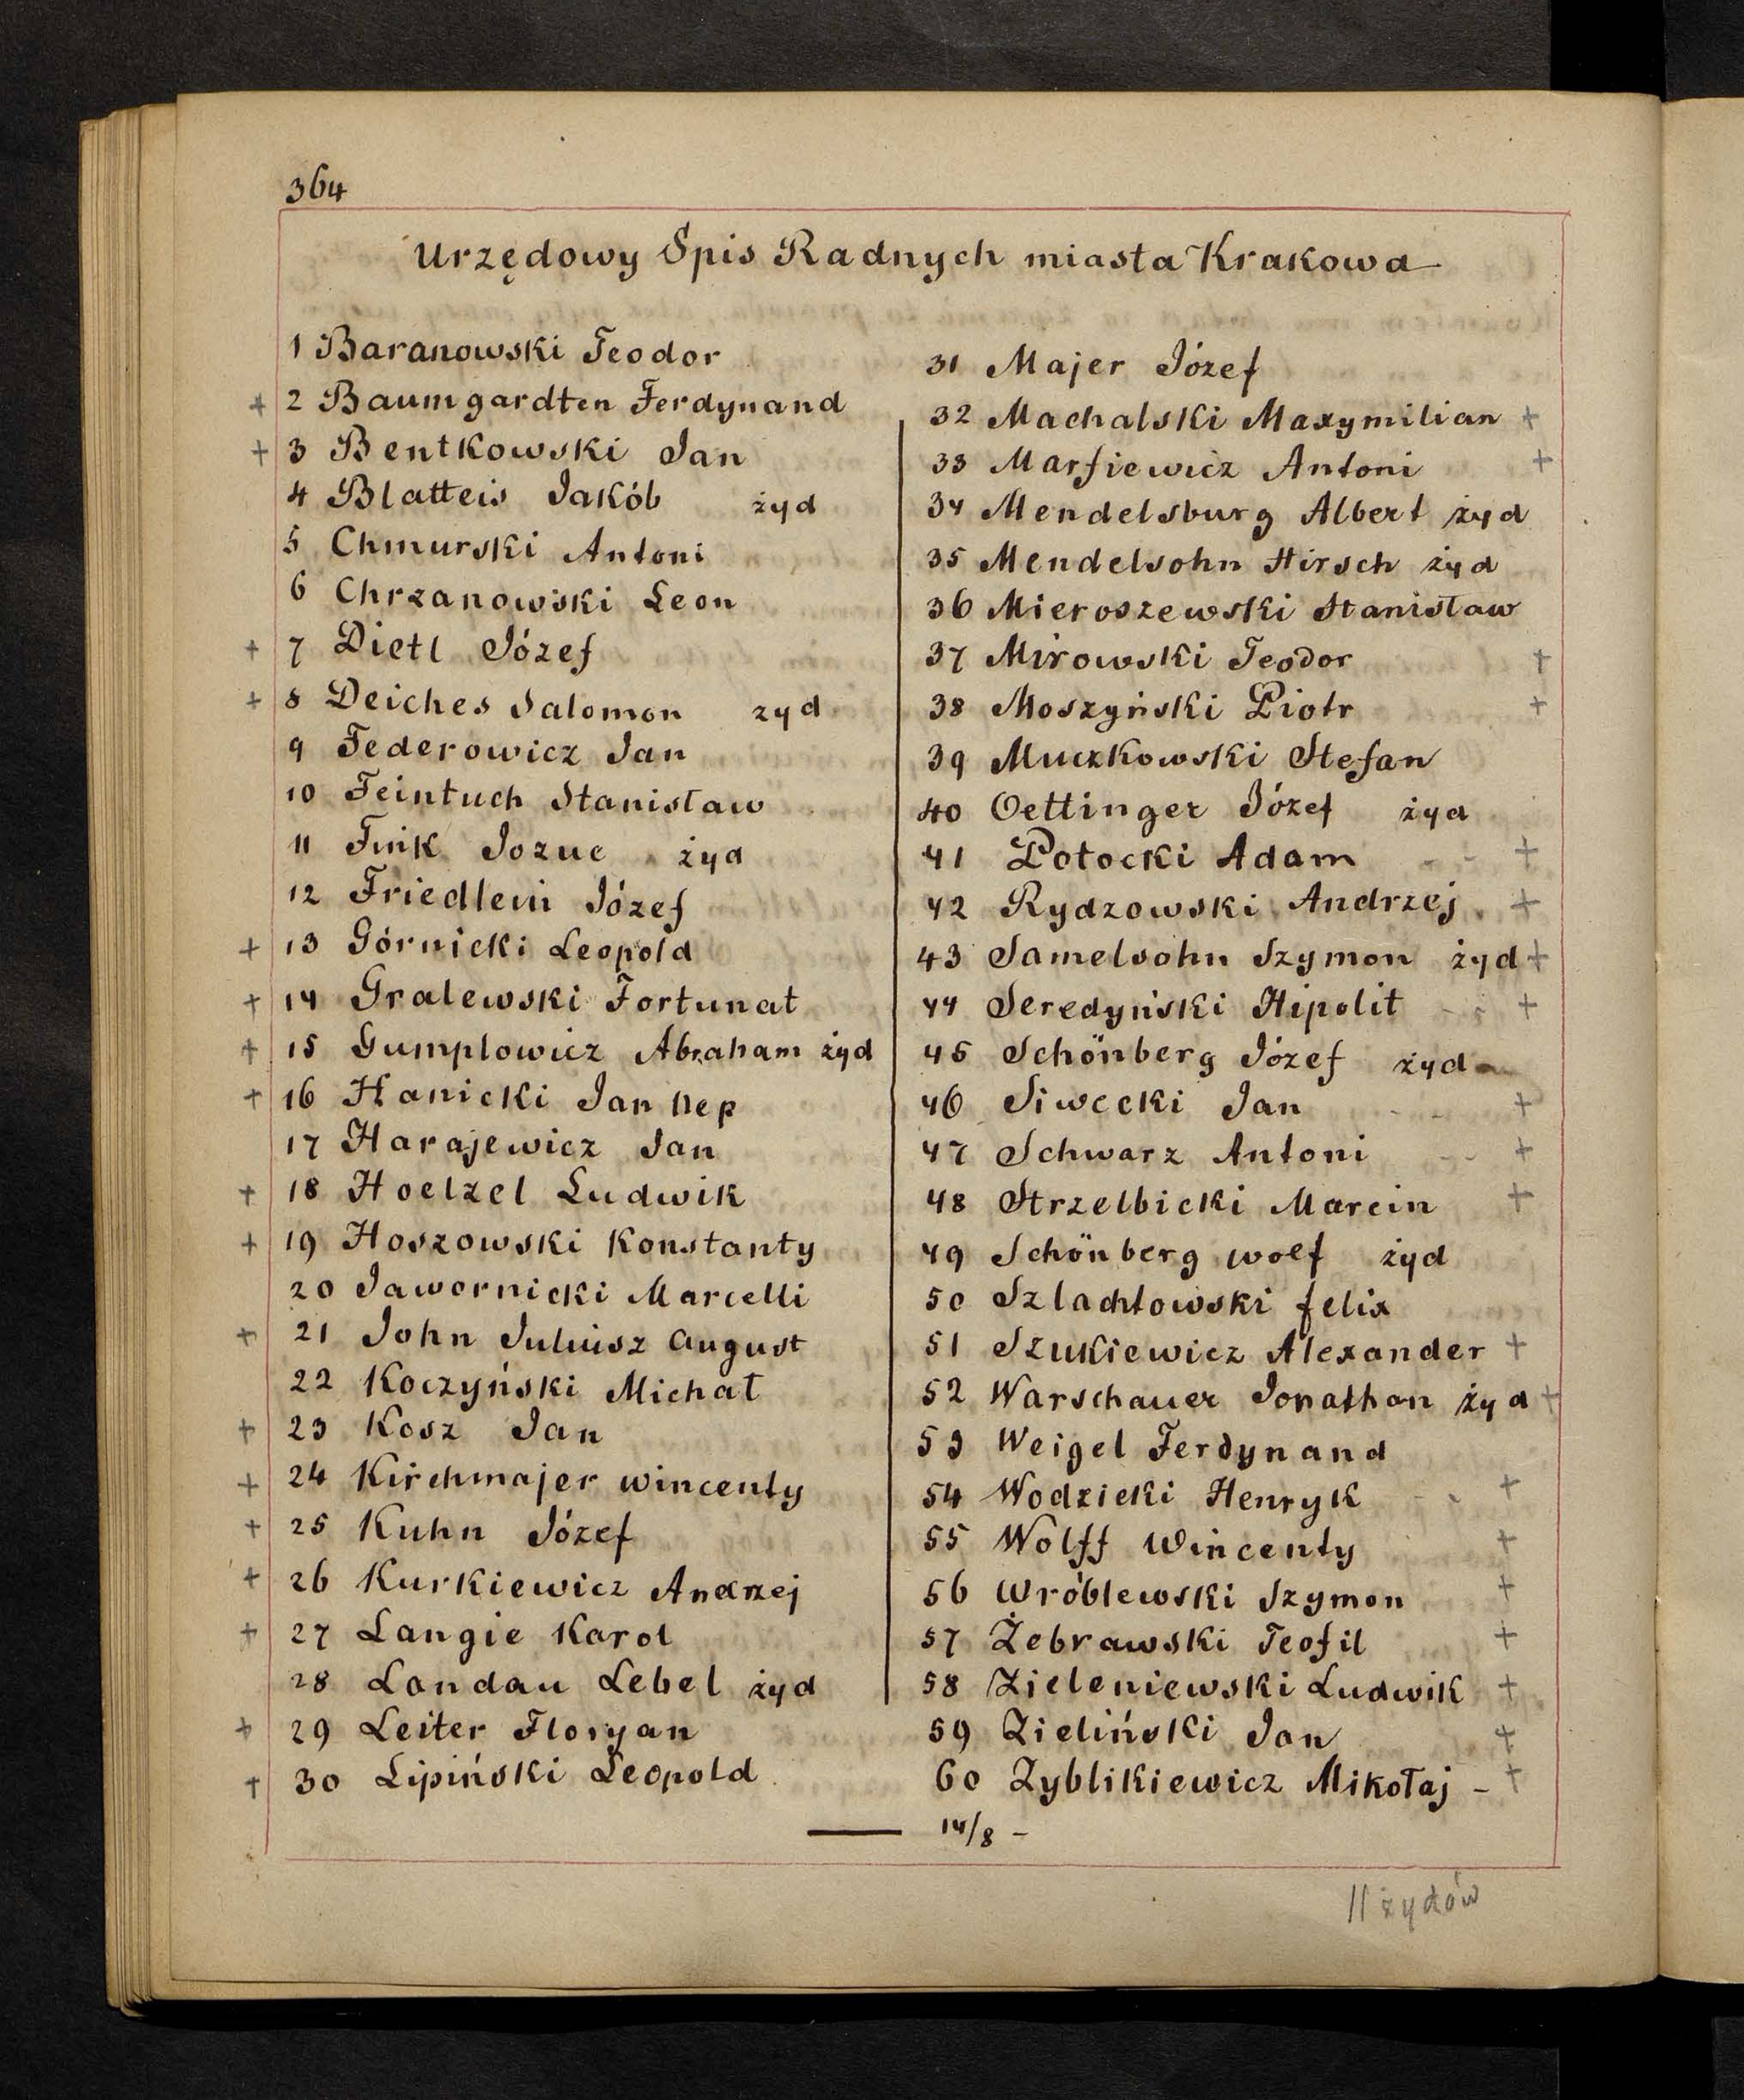 364
Urzędowy Spis Radnych miasta Krakowa
1 Baranowski Teodor
+ 2 Baumgardten Ferdynand
+ 3 Bentkowski Jan
4 Blatteis Jakób żyd
5 Chmurski Antoni
6 Chrzanowski Leon
+ 7 Dietl Józef
+ 8 Deiches Salomon zyd
9 Federowicz Jan
10 Feintuch Stanisław
11 Fink Jozue żyd
12 Friedlein Józef
+ 13 Górnicki Leopold
+ 14 Gralewski Fortunat
+ 15 Gumplowicz Abraham żyd
+ 16 Hanicki Jan Nep
17 Harajewicz Jan
+ 18 Hoelzel Ludwik
+ 19 Hoszowski Konstanty
20 Jawornicki Marcelli
+ 21 John Juliusz August
22 Koczyński Michał
+ 23 Kosz Jan
+ 24 Kirchmajer Wincenty
+ 25 Kuhn Józef
+ 26 Kurkiewicz Andrzej
+ 27 Langie Karol
28 Landau Lebel żyd
+ 29 Leiter Floryan
+ 30 Lipiński Leopold
31 Majer Józef
32 Machalski Maxymilian +
33 Marfiewicz Antoni +
34 Mendelsburg Albert żyd
35 Mendelsohn Hirsch żyd
36 Mieroszewski Stanisław
37 Mirowski Teodor +
38 Moszyński Piotr +
39 Muczkowski Stefan
40 Oettinger Józef żyd
41 Potocki Adam - - +
42 Rydzowski Andrzej +
43 Samelsohn Szymon żyd +
44 Seredyński Hipolit - - +
45 Schönberg Józef żyd
46 Siwecki Jan - - +
47 Schwarz Antoni - - +
48 Strzelbicki Marcin +
49 Schönberg Wolf żyd
50 Szlachtowski Felix
51 Szukiewicz Alexander +
52 Warschauer Jonathan żyd +
53 Weigel Ferdynand
54 Wodzicki Henryk - - +
55 Wolff Wincenty +
56 Wróblewski Szymon +
57 Żebrawski Teofil +
58 Zieleniewski Ludwik +
59 Zieliński Jan +
60 Zyblikiewicz Mikołaj - +
14/8 -
11 żydów